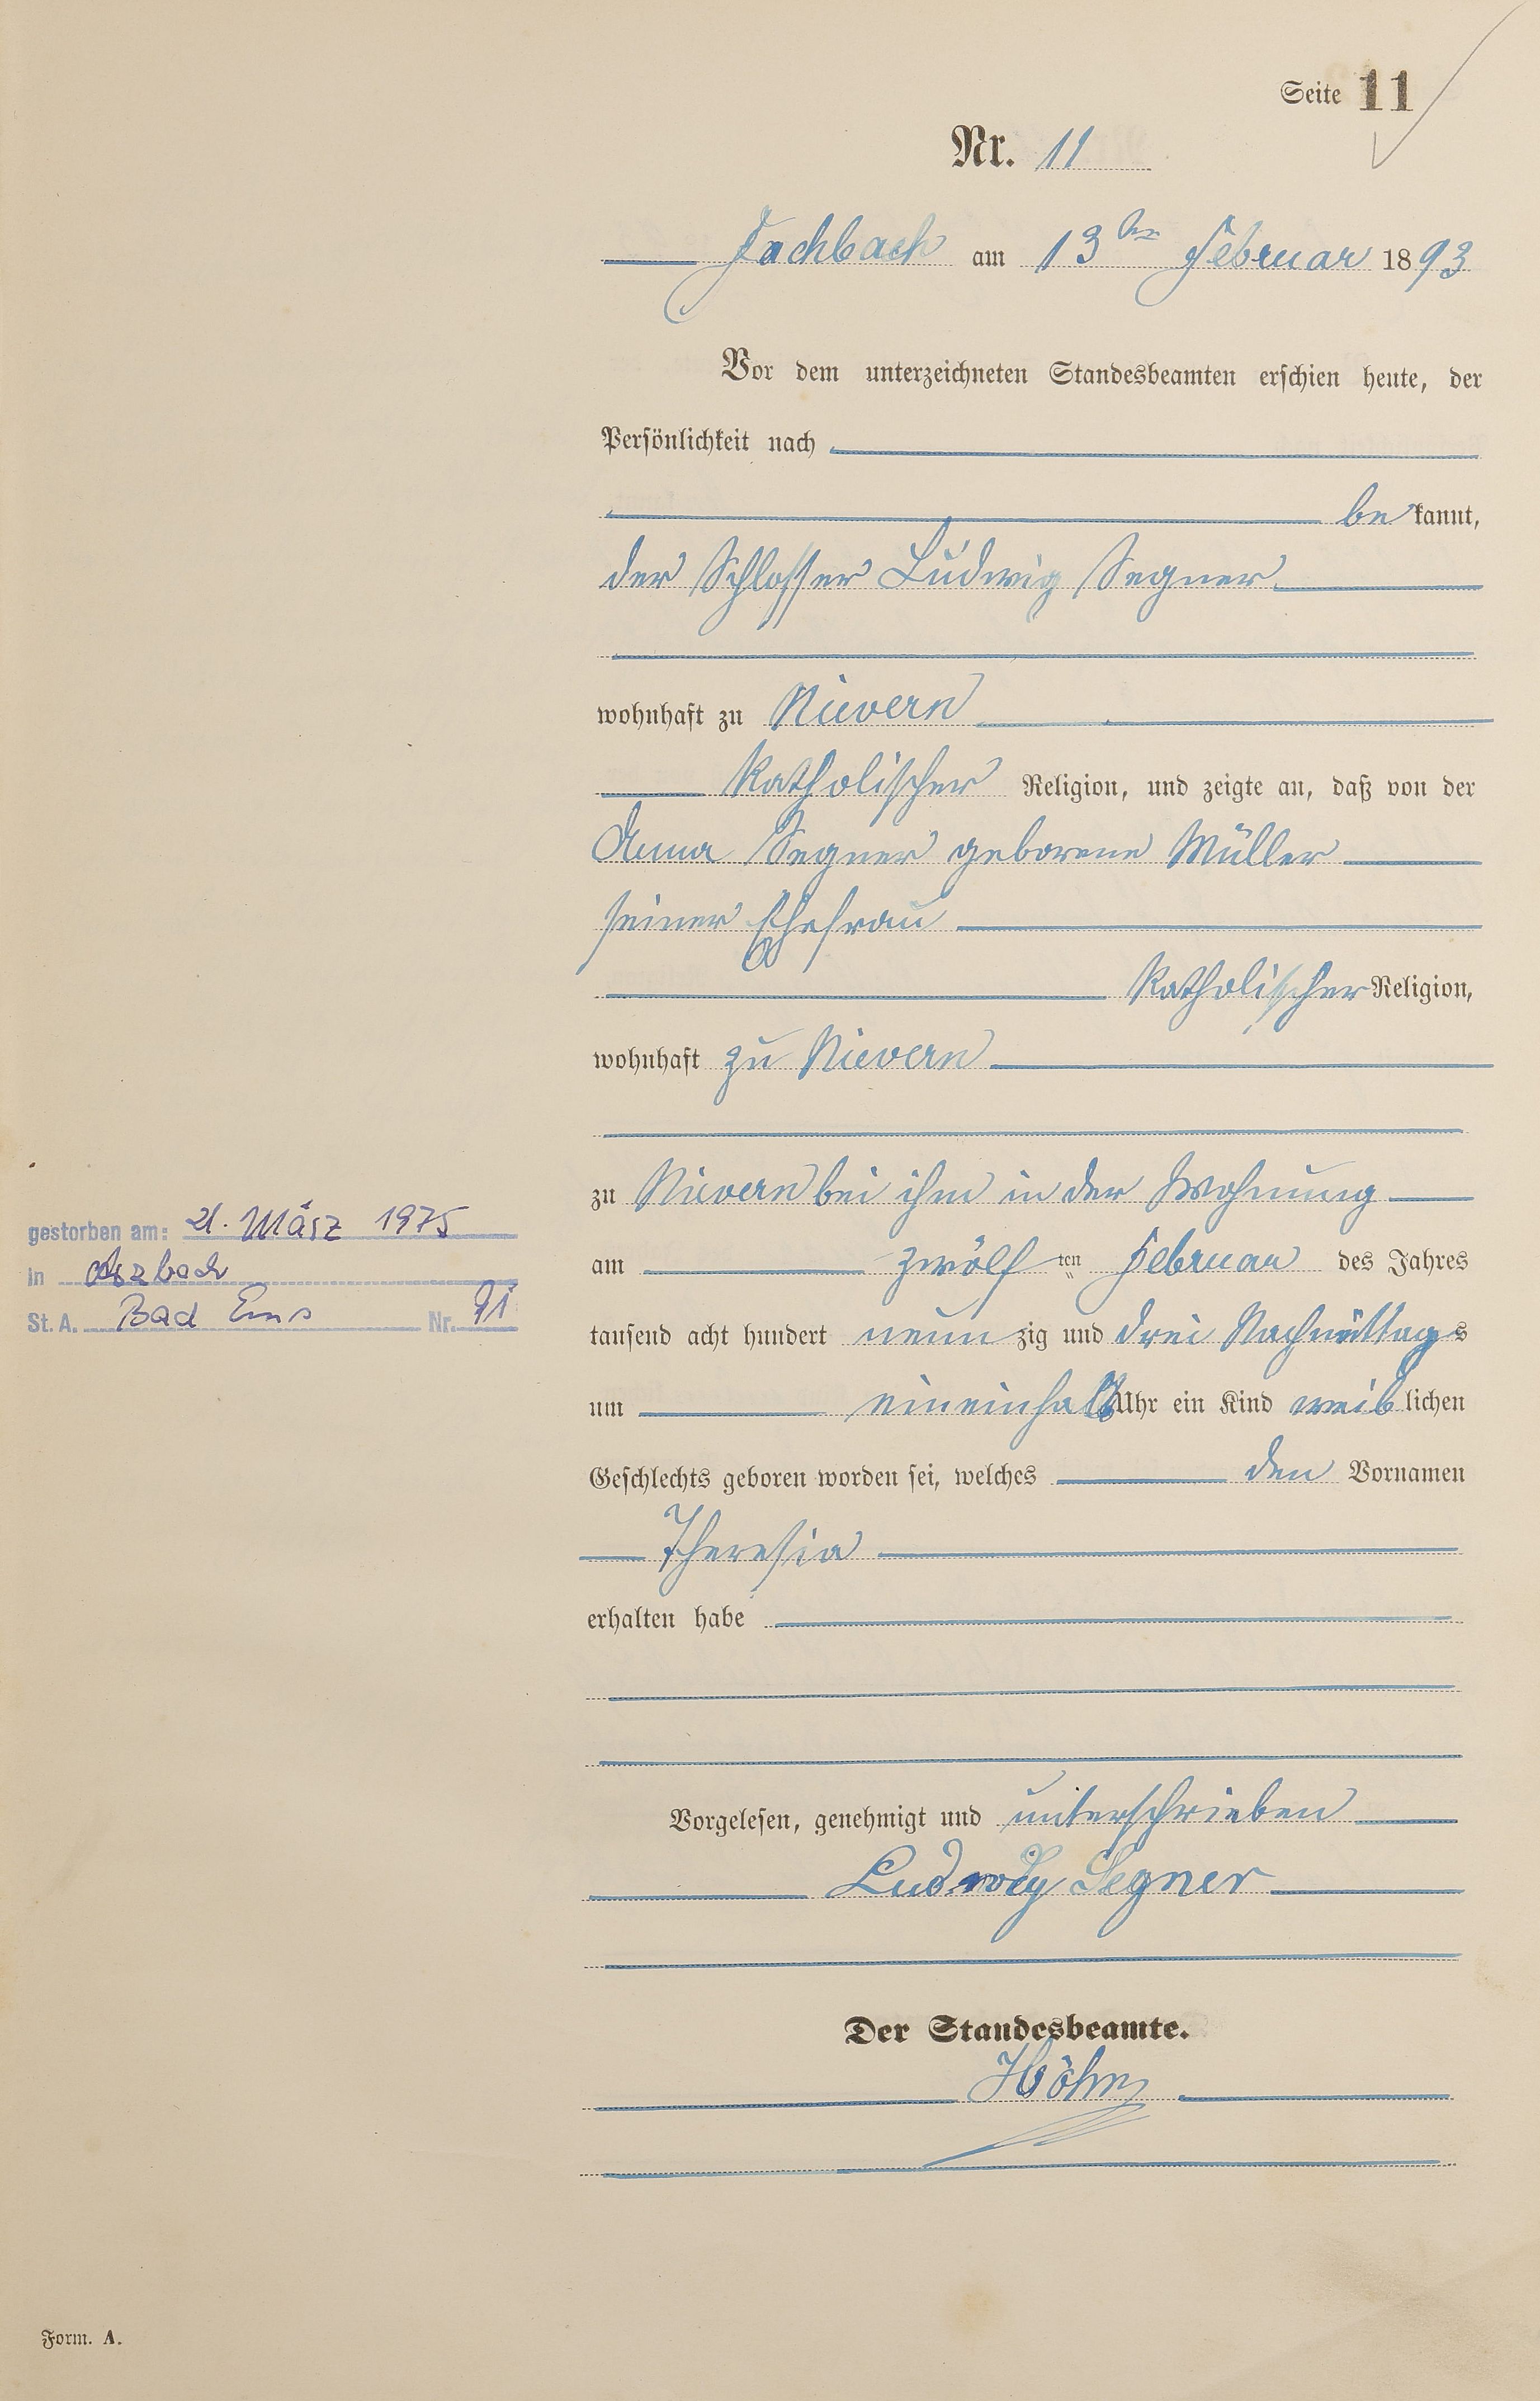 Seite 11
Nr. 11
Fachbach am 13ten Februar 1893
Vor dem unterzeichneten Standesbeamten erschien heute, der
Persönlichkeit nach
be kannt,
der Schlosser Ludwig Segner
wohnhaft zu Nievern
katholischer Religion, und zeigte an, daß von der
Anna Segner geborene Müller
seiner Ehefrau
katholischer Religion,
wohnhaft zu Nievern
zu Nievern bei ihm in der Wohnung
am zwölf ten Februar des Jahres
tausend acht hundert neun zig und drei Nachmittags
um eineinhalb Uhr ein Kind weib lichen
Geschlechts geboren worden sei, welches den Vornamen
Theresia
erhalten habe
Vorgelesen, genehmigt und unterschrieben
Ludwig Segner
Der Standesbeamte.
Höhn
gestorben am: 21. März 1975
in Arzbach
St. A. Bad Ems Nr. 91
Form. A.